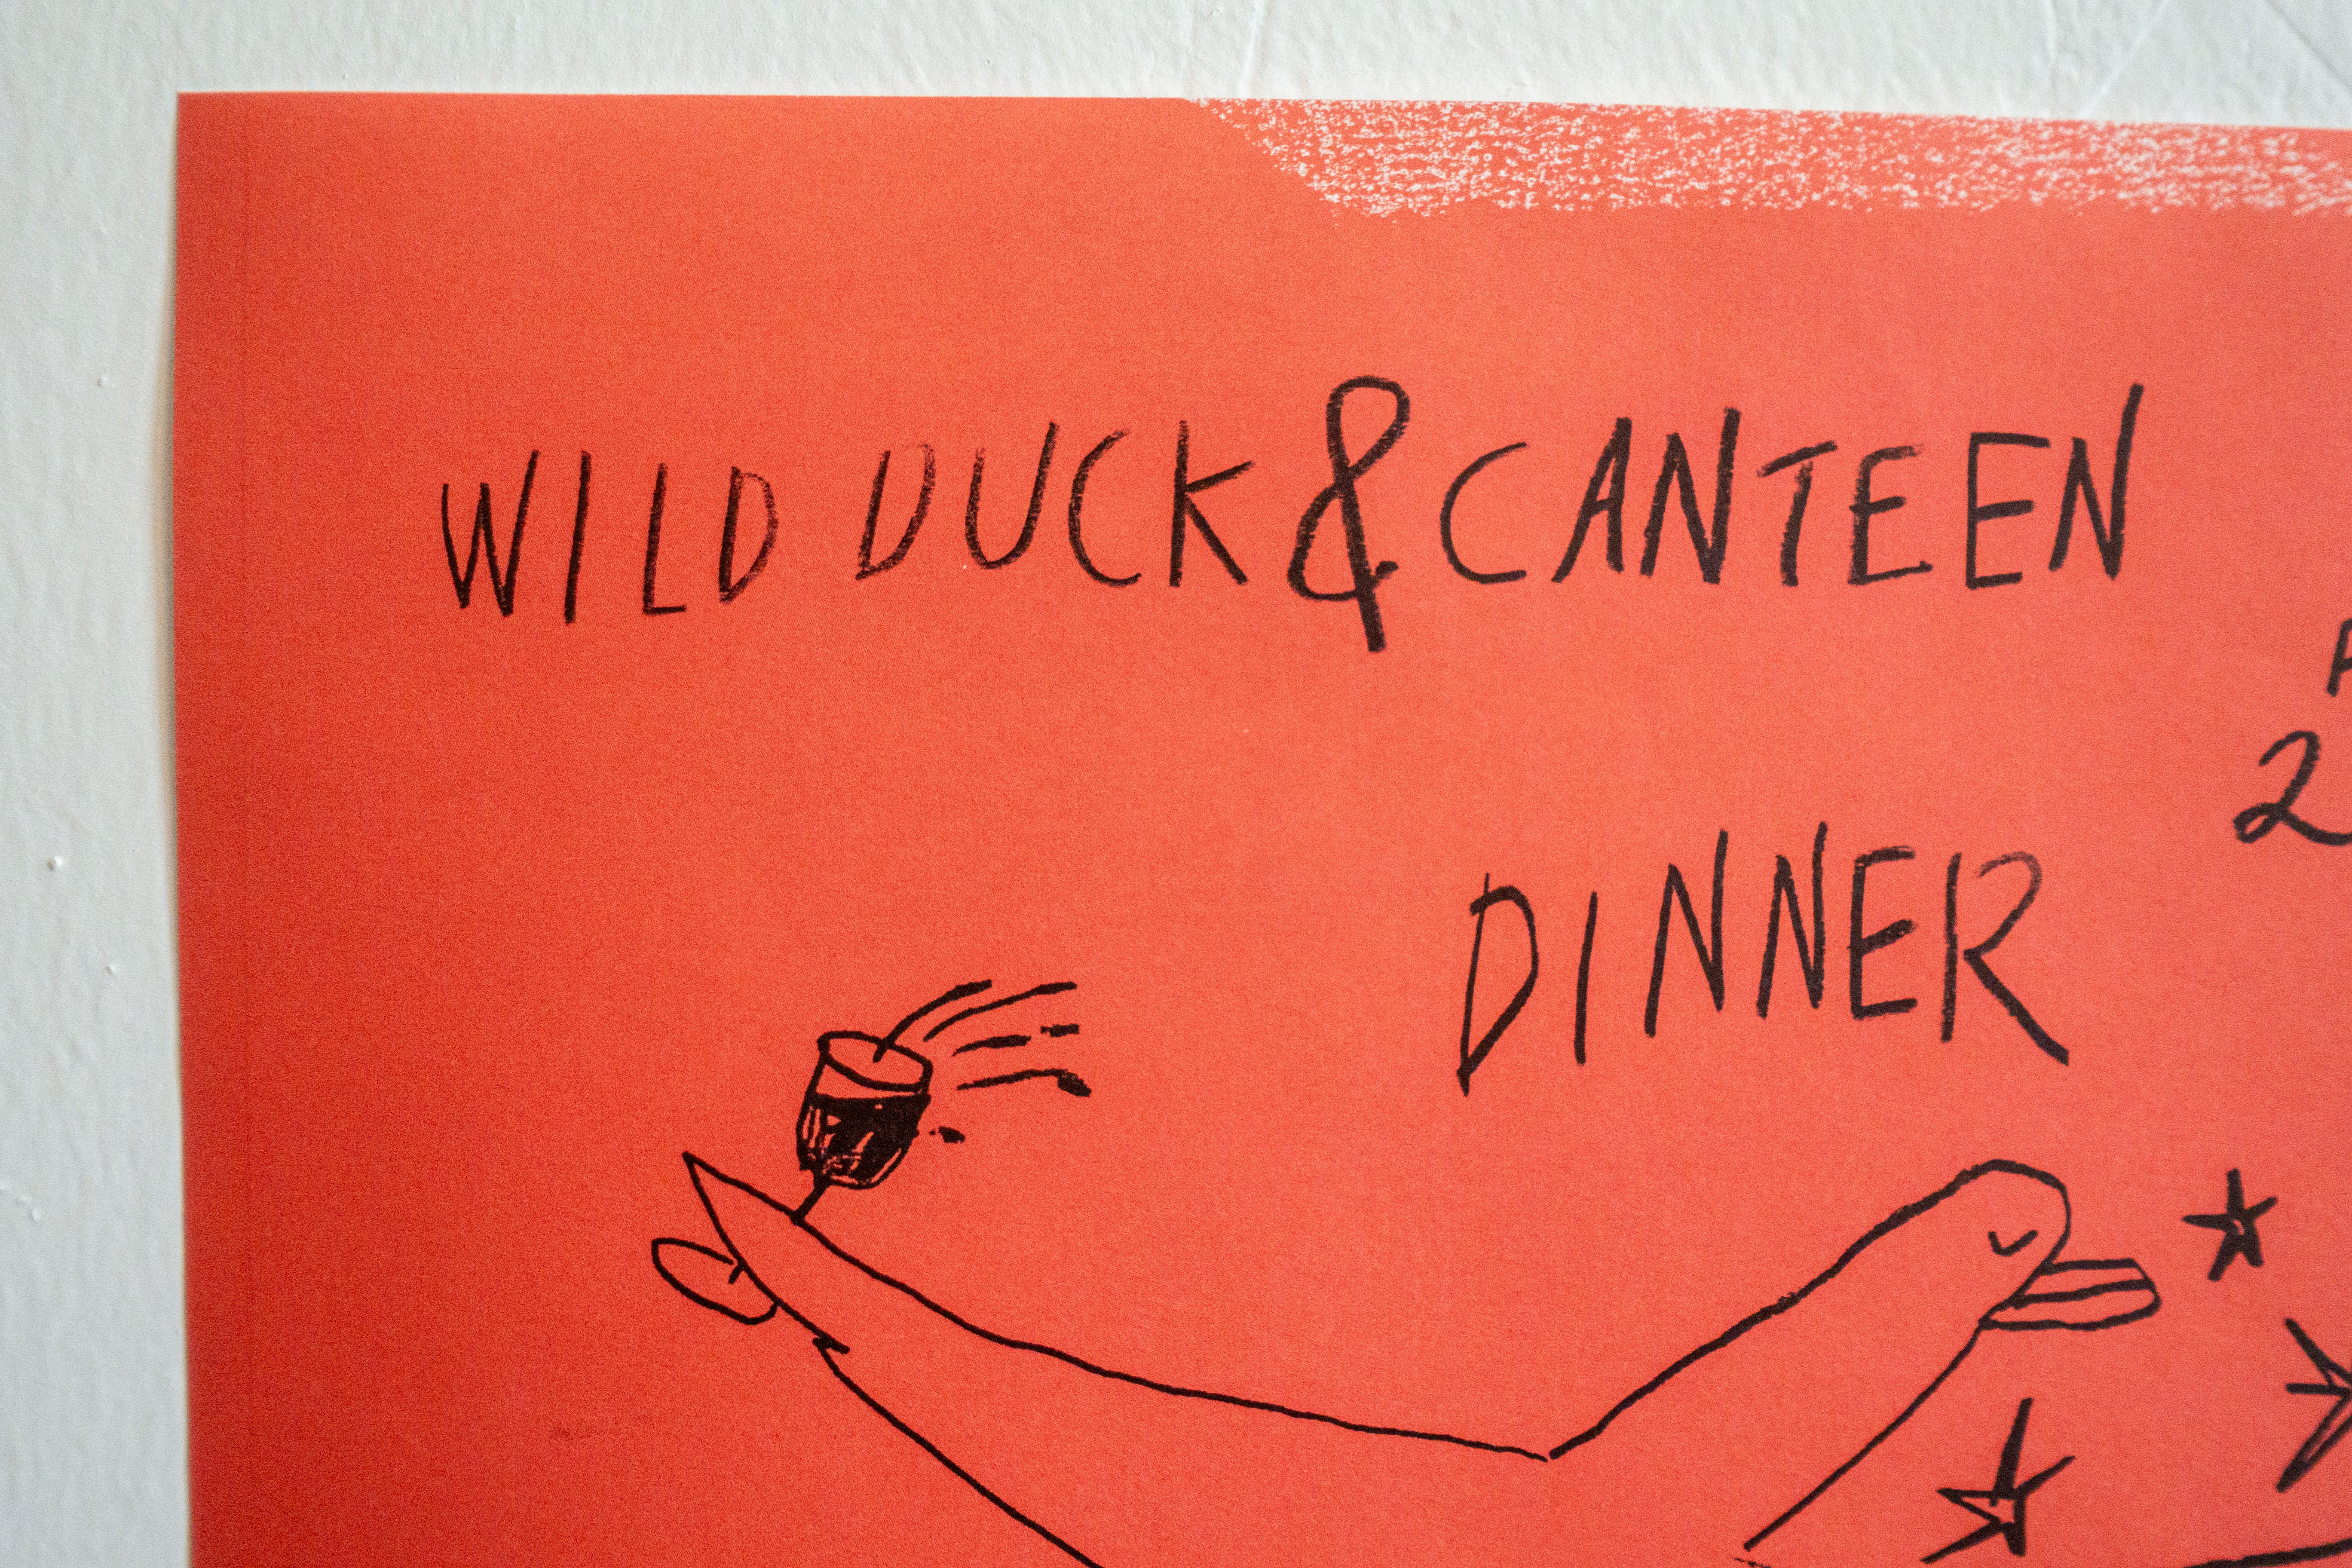 WILD DUCK & CANTEEN
2
DINNER